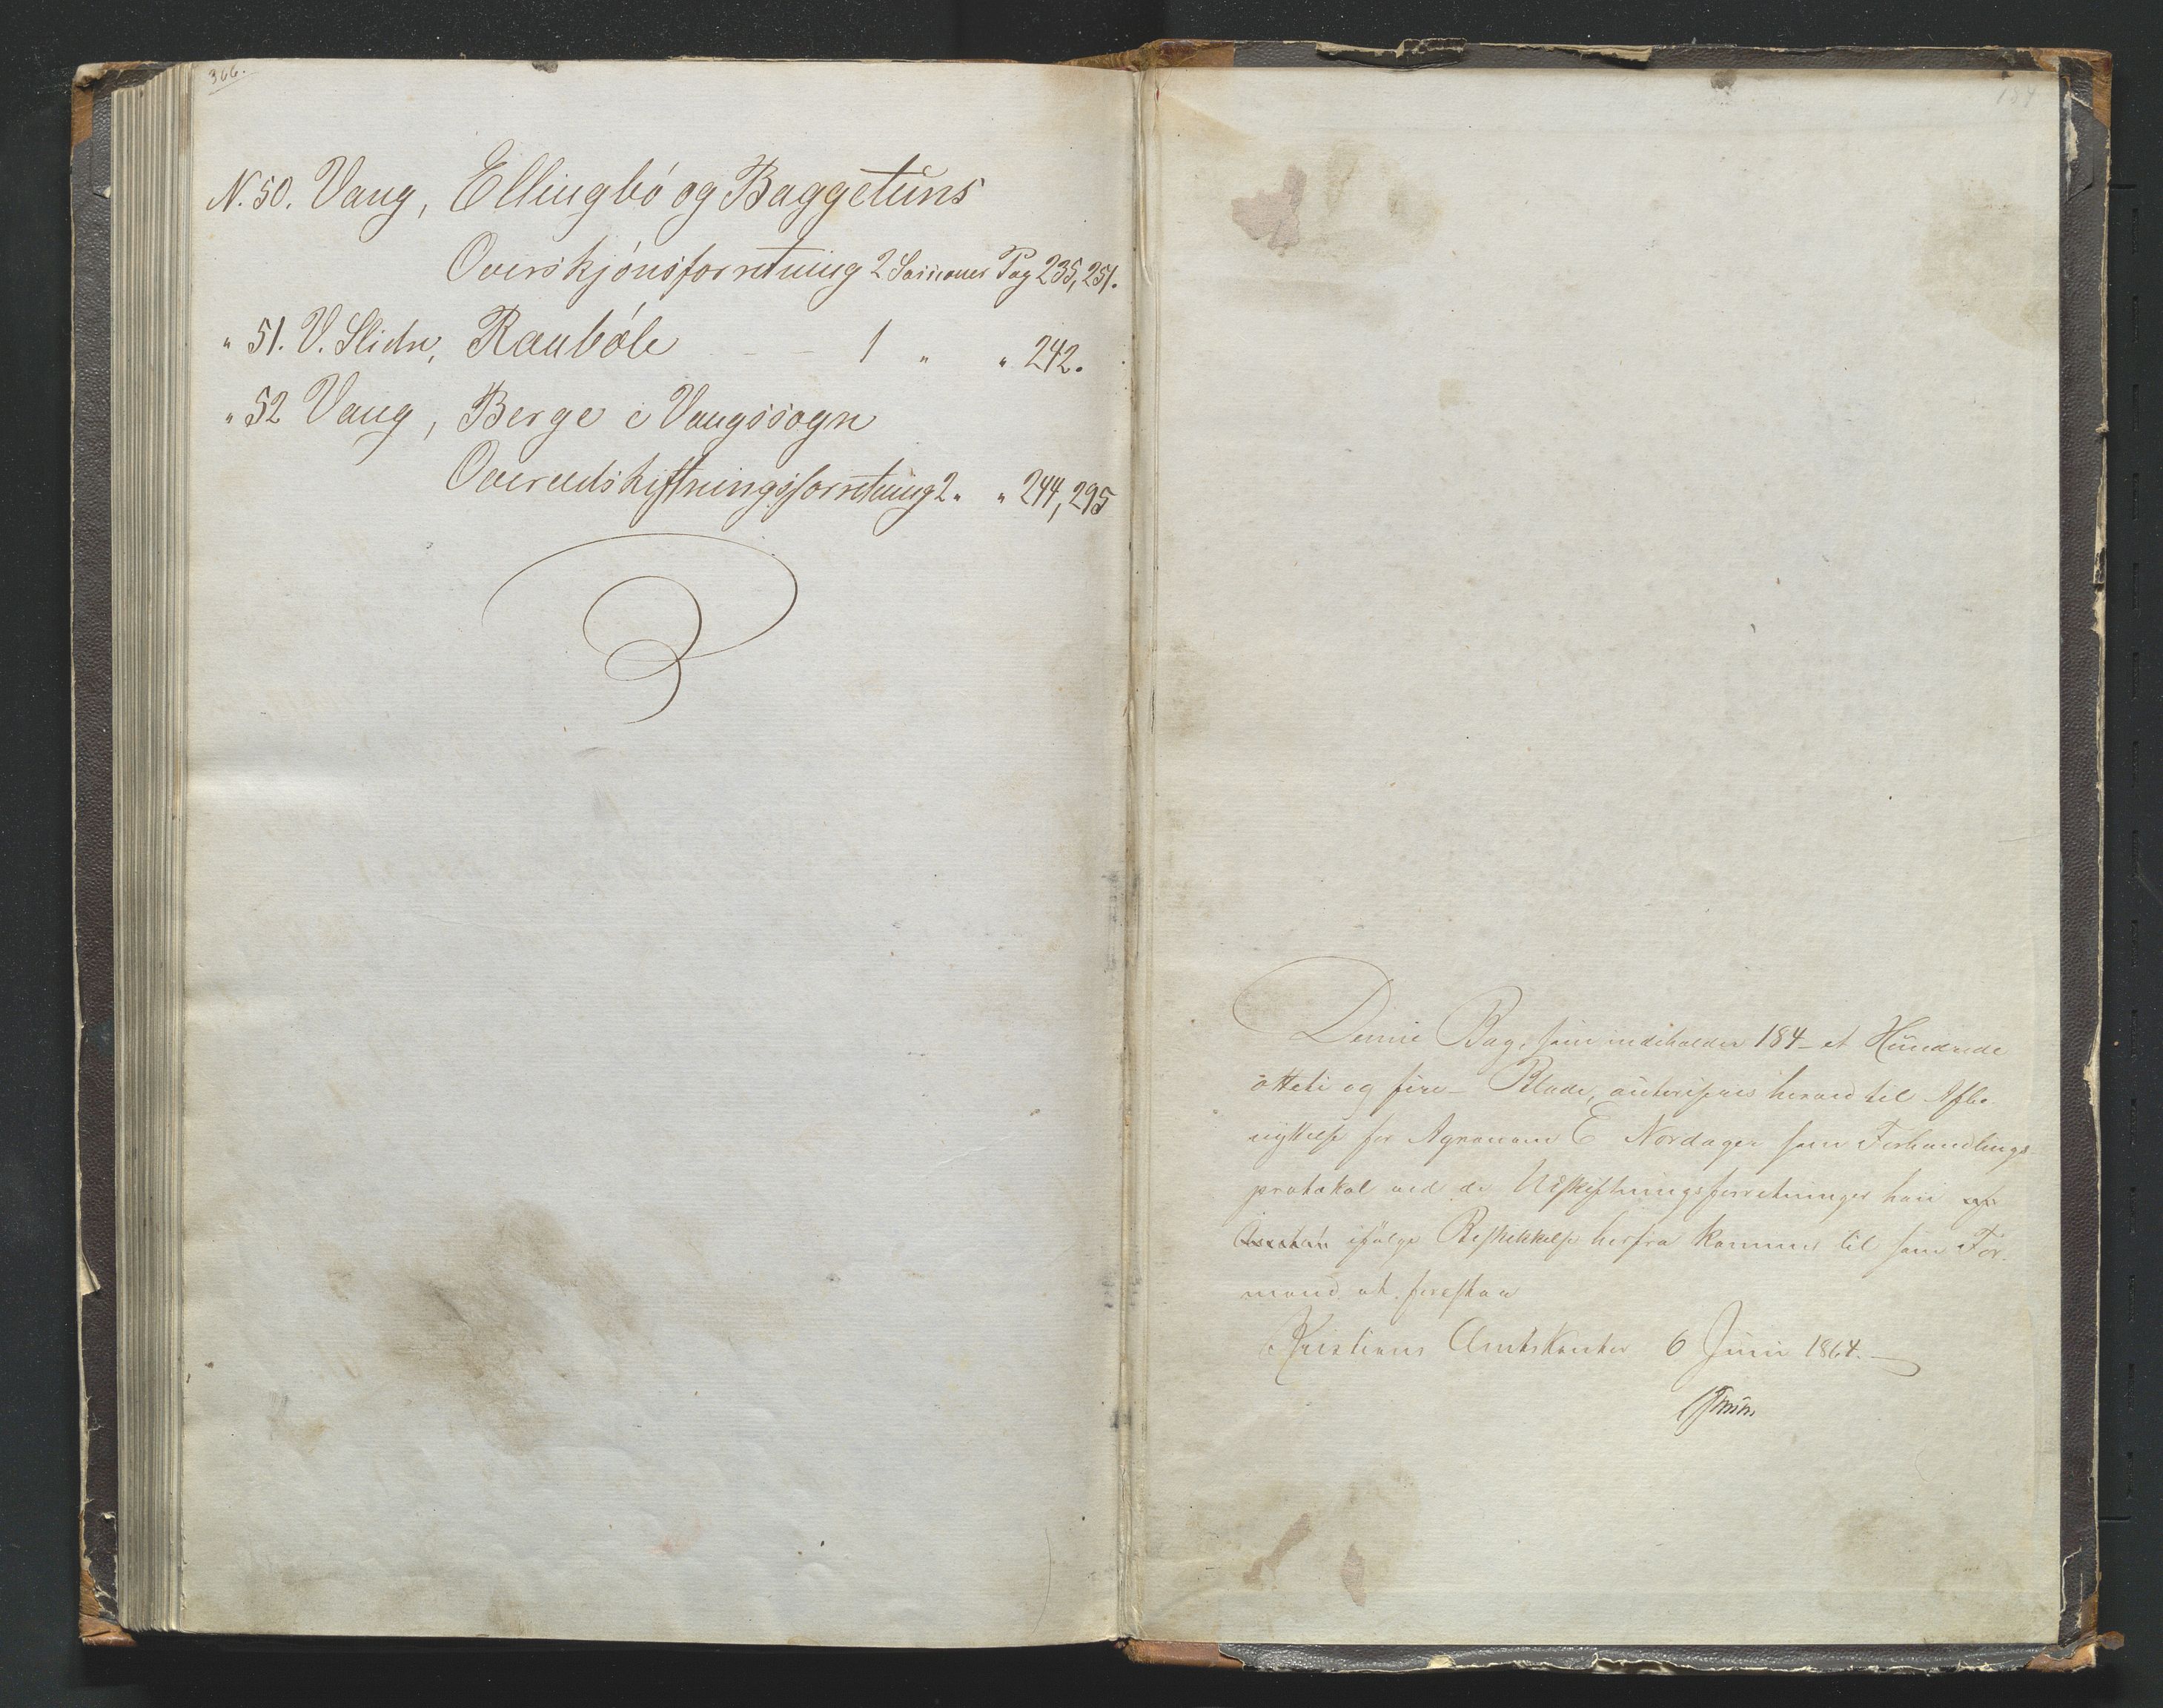 366.
N. 50. Vang, Ellingbö og Baggetuns
Overskjönsforretning 2 Sessioner Pag 235, 251.
" 51. V. Slidre, Rauböle - - 1 " " 242.
" 52 Vang, Berge i Vangssogn
Overudskiftningsforretning 2 " " 244, 295
184
Denne Bog, som indeholder 184 - et Hundrede
otteti og fire - Blade, autoriseres herved til Afbe
nyttelse for Agronom E Nordager som Forhandlings
protokol ved de Udskiftningsforretninger han af
ifölge Beskikkelse herfra kommer til som For-
mand at forestaa
Kristians Amtskontor 6 Juni 1864.